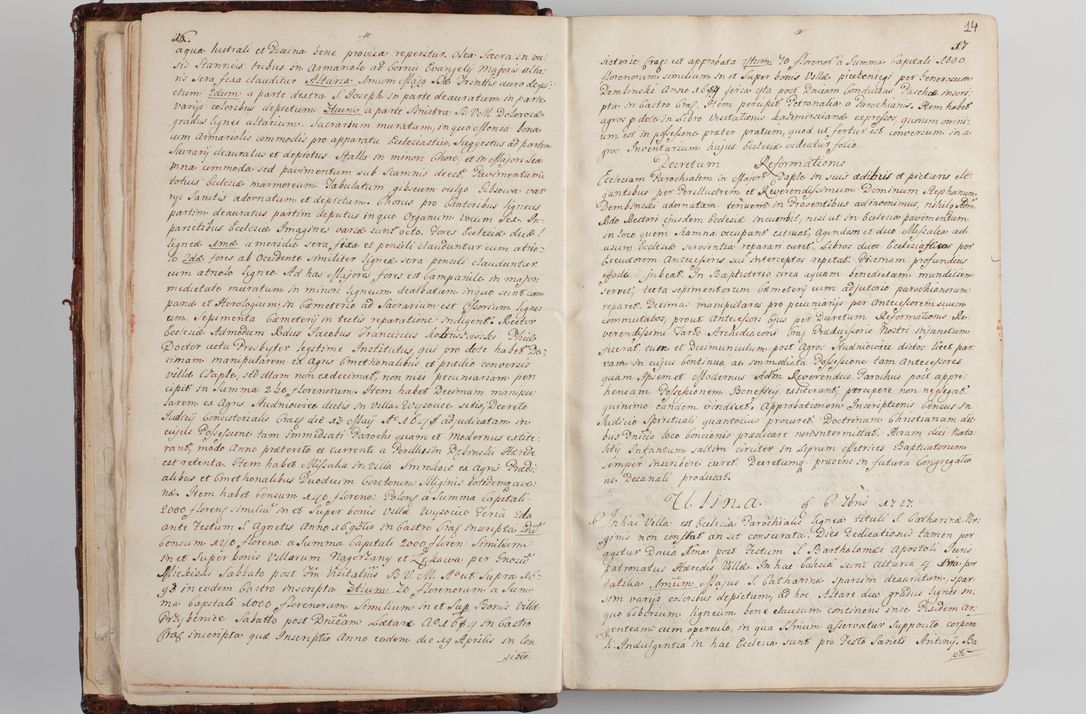 16.
aqua lustrali et Piscina bene provisa reperitur. Olea Sacra in va-
sis Stanneis tribus in Armariolo ad Cornu Evangely Majoris Alta-
ris sera fixa clauditur Altaria Imum Majus auro depi-
ctum 2dum a parte dextra S. Joseph in parte deauratum in parte
varys coloribus depictum 3tium a parte Sinistra B.V.M. Dolorosæ
gradus lignei Altarium. Sacrarium muratum, in quo Mensa bona
cum Armariolis commodis pro apparatu Ecclesiastico, Suggestus ad partem
Sacrary deauratus et depictus Stalla in minori Choro, et in Majori Sca-
mna commoda sed pavimentum sub Scamnis deest. Pavimentum
totius Ecclesiæ marmoreum. Tabulatum gibseum vulgo Gibsowa va-
rys Sanctis adornatum et depictum. Chorus pro Cantoribus ligneus
partim deauratus partim depictus in quo Organum Vocum Sex. In
parietibus Ecclesiæ Imagines variæ sunt octo. Fores Ecclesiæ duæ
ligneæ Imæ a meridie sera fixa et pensili clauduntur cum atrio-
lo 2dæ fores ab Occidente similiter ligneæ sera pensili clauduntur
cum atriolo ligneo. Ad has Majores fores est Campanile in majori
medietate muratum in minori ligneum dealbatum in quo sunt cam-
panæ et Horologium in Cæmeterio ad Sacrarium est Ossorium ligne-
um Sepimenta Cæmetery in tectis reparatione indigent. Rector
Ecclesiæ Admodum Rdus Jacobus Franciscus Phiæ
Doctor actu Presbyter legitime Institutus, qui pro dote habet De-
cimam manipularem ex Agris Cmethonalibus et prædio conversis
villæ Czaple, sed illam non exdecimat, non nisi pecuniariam per-
cipit in Summa 220 florenorum. Item habet Decimam manipu-
larem ex Agris Studniowice dictis in Villa Wysocice sitis, Decreto
Judicy Consistorialis Crac die 23 Maij Ao 1648 adjudicatam in
cujus Possessione tam immediati Parochi quam et Modernus extite-
rant, modo Anno præterito et currenti a Perillustri Dębinski Hærede
est retenta. Item habet Missalia in Villa Smroków ex Agris Prædi-
alibus et Cmethonalibus Duodecim Coretorum Siliginis totidemq ave-
næ. Item habet Censum 140 floreno: Polon: a Summa Capitali
2000 floren: similium in et Super bonis villæ Wysocice Feria 2da
ante Festum S. Agnetis Anno 1693tio in Castro Crac inscripta 2dum
Censum 140 floreno: a Summa Capitali 2000 floren: Similium
in et Super bonis Villarum Nagorzany et Łękawa per Gnosum
Micicki Sabbato post Fm Visitatiis B.V.M. Ao ut Supra 16-
93 in eodem Castro inscripta 3tium 20 florenorum a Sum-
ma Capitali 1000 florenorum Similium in et Sup Bonis Villæ
Sabatto post Dnicam Lætare Ao 1684 in Castro
Crac inscripta quæ Inscriptio Anno eodem die 19 Aprilis in Con
sisto
14
17
sistorio Crac: est approbata 4tum 70 floreno: a Summa Capitali 1000
florenorum similium in et Super bonis Villæ per Generosum
Dembinski Anno 1684 feria 4ta post Dnicam Conductus Paschæ inscri-
pta in Castro Crac. Item percipit Petronalia a Parochianis. Item habet
agros p dote in Libro Visitationis Kazimirsianæ expressos quorum omni-
um est in possessione præter pratum, quod ut fertur est conversum in a-
gros Inventarium hujus Ecclesiæ videatur folio.
Decretum Reformationis
Ecclesiam Parochialem in Majori Czaple in suis ædibus et picturis le-
gantibus per Perillustrem et Reverendissimum Dominum Stephanum
Dembinski adornatam tenuem in Præsentibus admonemus, nihilq Adm
Rdo Rectori ejusdem Ecclesiæ incumbit, nisi ut in Ecclesia pavimentum
in loco quem Scamna occupant extruat, Agendam et duo Missalia ad
usum Ecclesiæ servientia reparari curet. Libros duos Ecclesiasticos per
Executorem Antecessoris sui interceptos repetat. Piscinam profundius
effodi jubeat. In Baptisterio circa aquam benedictam munditiem
servet, tecta sepimentorum cæmetery cum adjutorio parochianorum
reparet. Decimas manipulares pro pecuniarys per Antecessorem suum
commutatos, prout Antecessori ejus per Decretum Reformationis Re-
verendissimi Tarło Archidiaconi Crac Prædecessoris Nostri injunctum
fuerat tum et Decimunculam post Agros Studniowice dictos licet par-
vam in cujus continua ac immediata Possessione tam Antecessores
quam Ipsemet Modernus Adm Reverendus Parochus post appre-
hensam Possessionem Beneficy extiterant, percipere non negligat
quinimo eandem vindicet. Approbationem Inscriptionis Census in
Judicio Spirituali quantocius procuret. Doctrinam Christianam die-
bus Dnicis loco Concionis prædicare nonintermittat. Horam diei Nata-
lity Infantum saltim circiter in Librum Metrices Baptizatorum
semper inscribere curet Decretumq præsens in futura Congregatio-
ne Decanali producat.
Ulina. 9 6 7bris 1727.
6 In hac Villa est Ecclesia Parochialis lignea tituli S. Catharinæ Vir-
ginis non constat an sit consecrata. Dies Dedicationis tamen per-
agitur Dnica Ima post Festum S. Bartholomæi Apostoli Juris
patronatus Hæredis Villæ. In hac Eclesia sunt Altaria 4
tatilia Imum Majus S. Catharinæ sparsim deauratum, spar-
sim varys coloribus depictum, ad hoc Altare duo gradus lignei in
quo Ciborium ligneum bene clausum continens inse Pixidem Ar-
genteam cum operculo, in qua SSmum asservatur supposito corpora-
li. Indulgentia in hac Ecclesia sunt pro Festo Sancti Antonij, Ba-
pti-